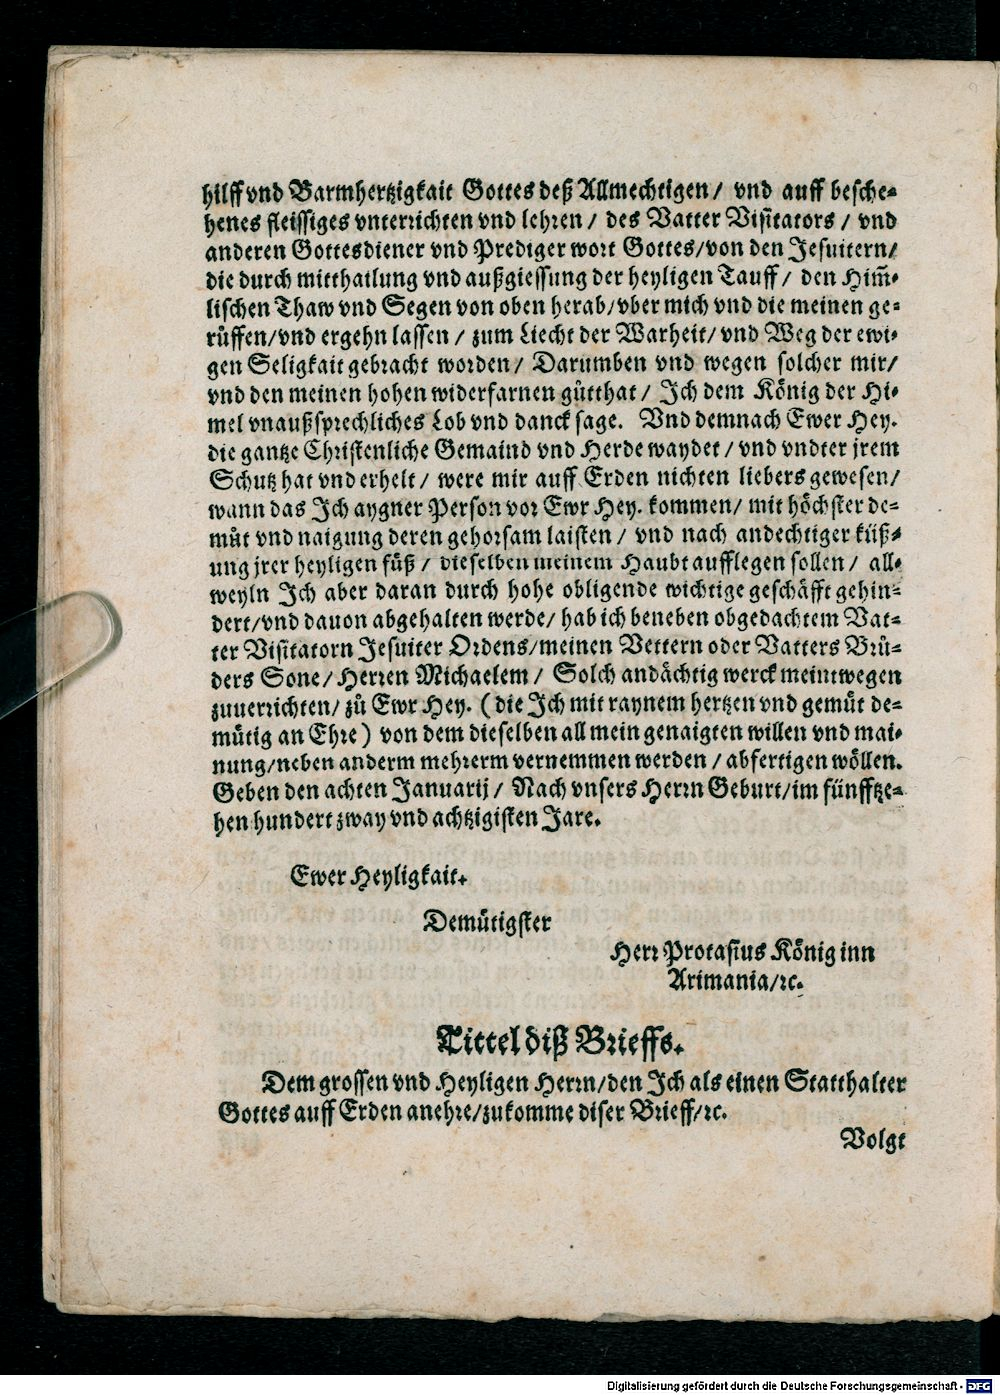 hilff vnd Barmhertzigkait Gottes deß Allmechtigen / vnd auff besche⸗
henes fleissiges vnterrichten vnd lehren / des Vatter Visitators / vnd
anderen Gottesdiener vnd Prediger wort Gottes/von den Jesuitern/
die durch mitthailung vnd außgiessung der heyligen Tauff / den Him̃⸗
lischen Thaw vnd Segen von oben herab/vber mich vnd die meinen ge⸗
rüffen/vnd ergehn lassen / zum Liecht der Warheit/ vnd Weg der ewi⸗
gen Seligkait gebracht worden / Darumben vnd wegen solcher mir/
vnd den meinen hohen widerfarnen gůtthat / Jch dem König der Hi⸗
mel vnaußsprechliches Lob vnd danck sage. Vnd demnach Ewer Hey.
die gantze Christenliche Gemaind vnd Herde waydet / vnd vndter jrem
Schutz hat vnd erhelt / were mir auff Erden nichten liebers gewesen/
wann das Jch aygner Person vor Ewr Hey. kommen/ mit höchster de⸗
můt vnd naigung deren gehorsam laisten / vnd nach andechtiger küß⸗
ung jrer heyligen füß / dieselben meinem Haubt aufflegen sollen / all⸗
weyln Jch aber daran durch hohe obligende wichtige geschäfft gehin⸗
dert/vnd dauon abgehalten werde/ hab ich beneben obgedachtem Vat⸗
ter Visitatorn Jesuiter Ordens/meinen Vettern oder Vatters Brü⸗
ders Sone/ Herren Michaelem / Solch andächtig werck meintwegen
zuuerrichten/ zů Ewr Hey. (die Jch mit raynem hertzen vnd gemůt de⸗
můtig an Ehre) von dem dieselben all mein genaigten willen vnd mai⸗
nung/neben anderm mehrerm vernemmen werden / abfertigen wöllen.
Geben den achten Januarij / Nach vnsers Herrn Geburt/im fünfftze⸗
hen hundert zway vnd achtzigisten Jare.
Ewer Heyligkait.
Demůtigster
Herr Protasius König inn
Arimania/ꝛc.
Tittel diß Brieffs.
Dem grossen vnd Heyligen Herrn/den Jch als einen Statthalter
Gottes auff Erden anehre/zukomme diser Brieff/ꝛc.
Volgt
Digitalisierung gefördert durch die Deutsche Forschungsgemeinschaft - DFG